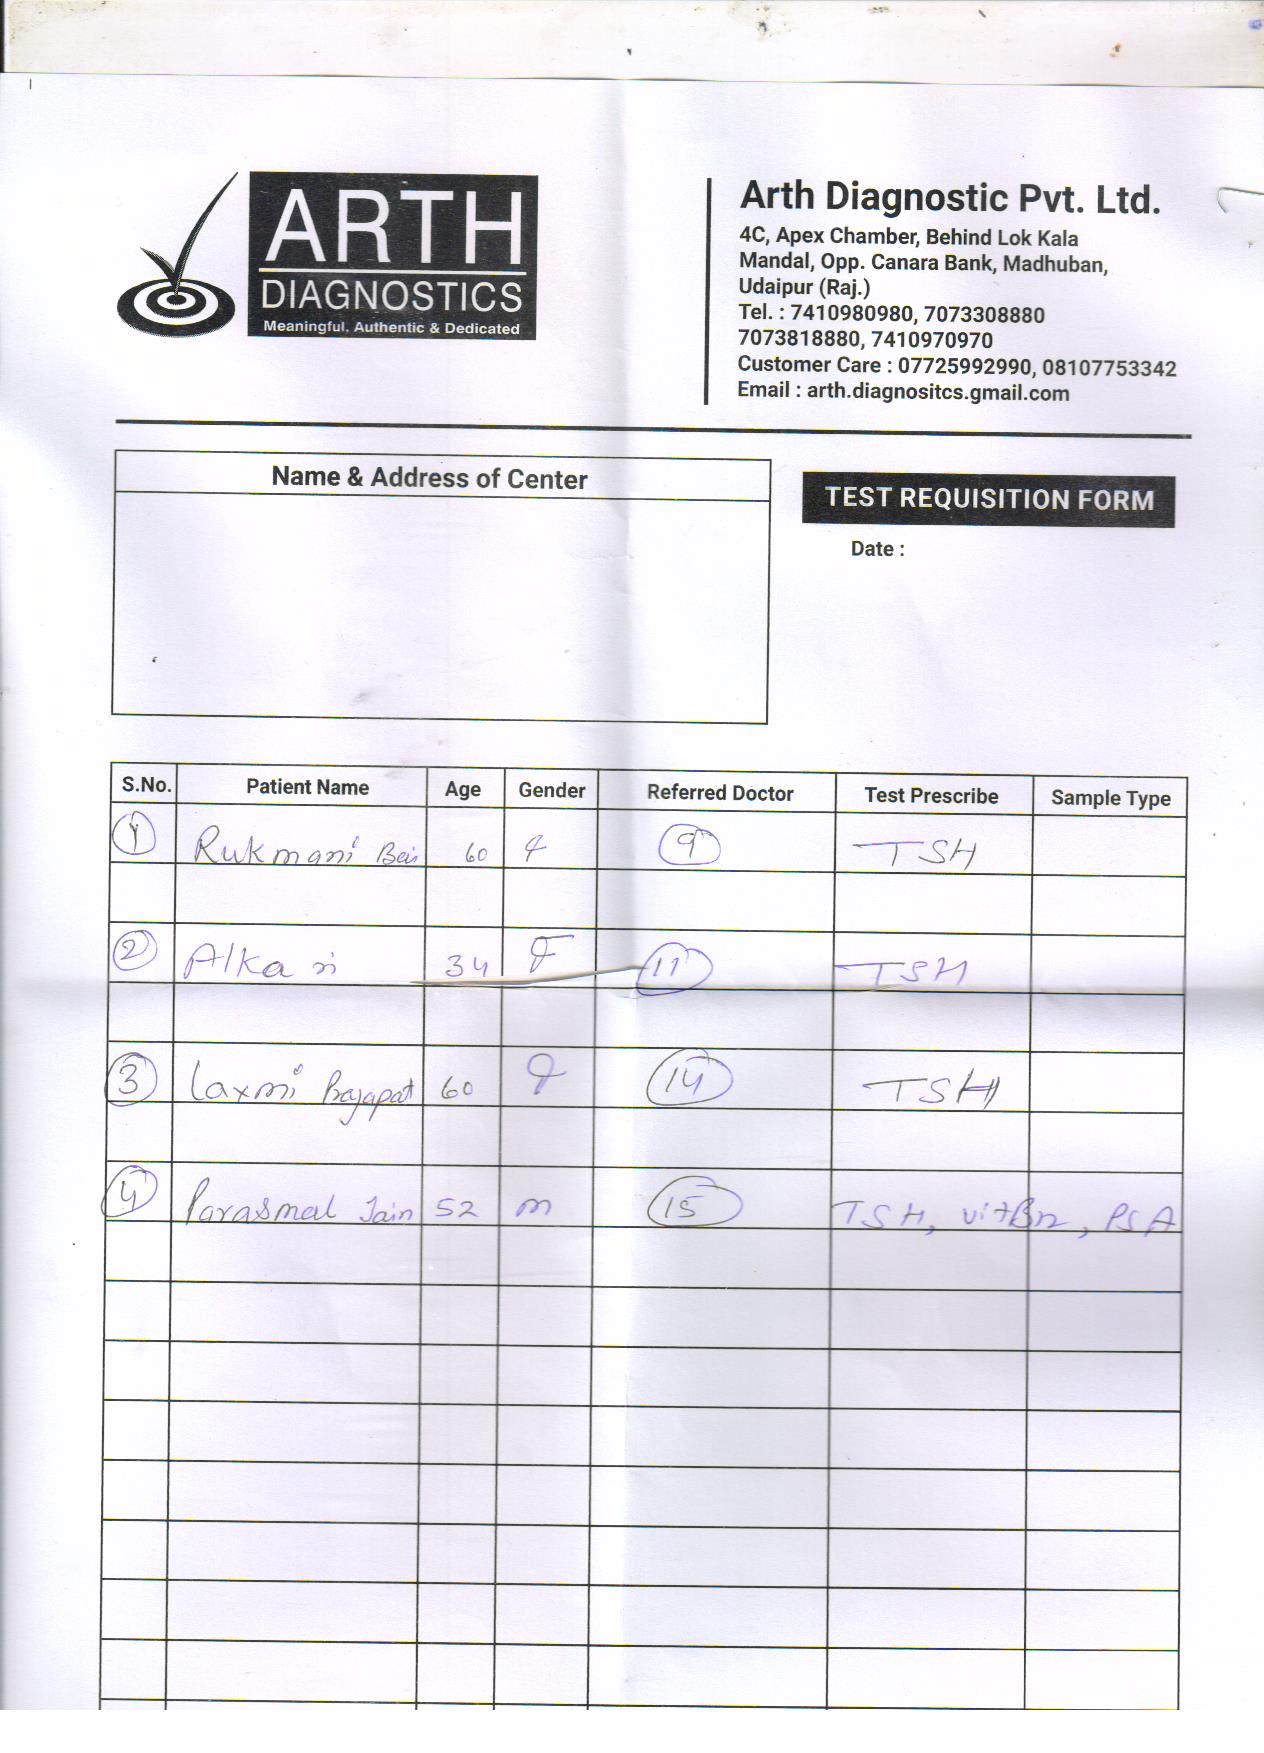 ARTH
DIAGNOSTICS
Meaningful, Authentic & Dedicated
Arth Diagnostic Pvt. Ltd.
4C, Apex Chamber, Behind Lok Kala
Mandal, Opp. Canara Bank, Madhuban,
Udaipur (Raj.)
Tel. : 7410980980, 7073308880
7073818880, 7410970970
Customer Care : 07725992990, 08107753342
Email : arth.diagnositcs.gmail.com
Name & Address of Center
TEST REQUISITION FORM
Date :
S.No. Patient Name Age Gender Referred Doctor Test Prescribe Sample Type
1 Rukmani Bai 60 F 9 TSH
2 Alka 34 F 11 TSH
3 Laxmi Prajapat 60 F 14 TSH
4 Parasmal Jain 52 m 15 TSH, vitB12, PSA